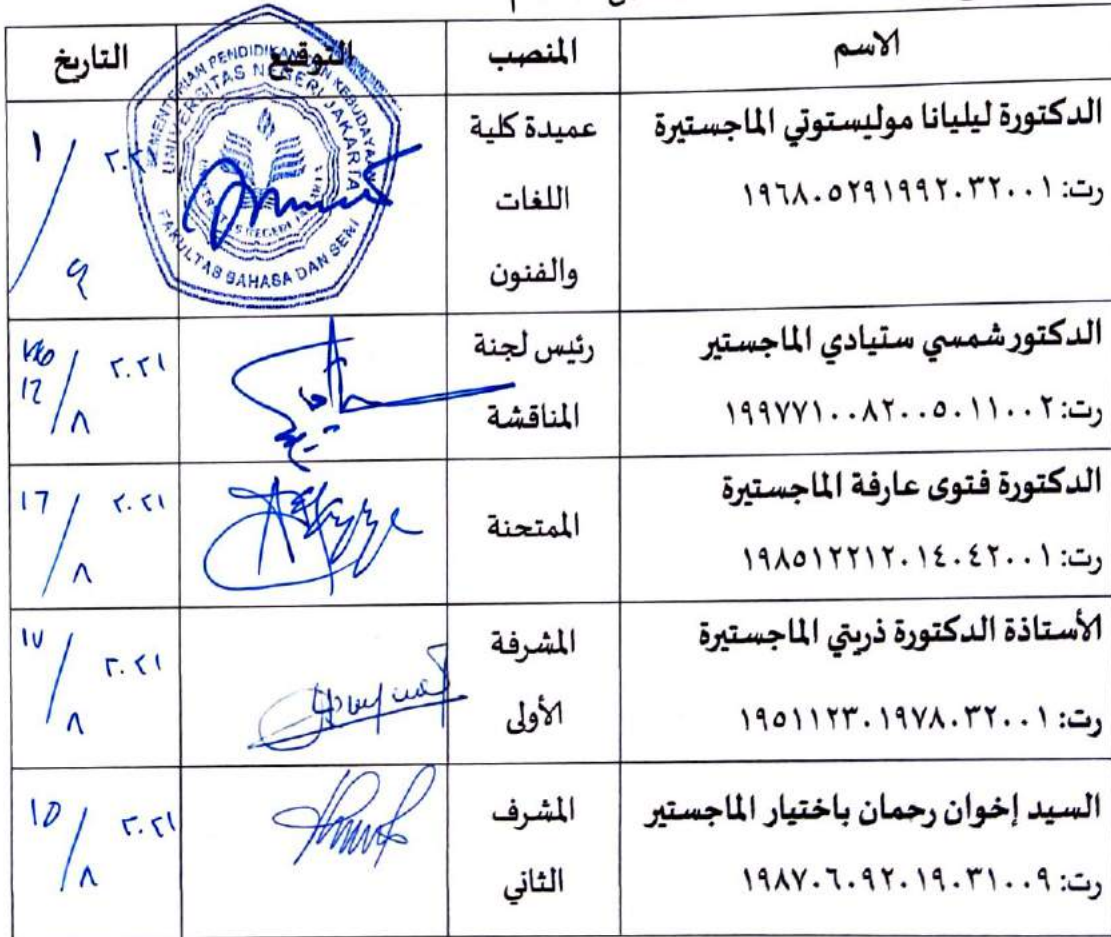 الاسم
المنصب
التوقيع
التاريخ
الدكتورة ليليانا موليستوتي الماجستيرة
رت: ١٩٦٨٠٥٢٩١٩٩٢٠٣٢٠٠١
عميدة كلية
اللغات
والفنون
KEMENTERIAN PENDIDIKAN DAN KEBUDAYAAN
UNIVERSITAS NEGERI JAKARTA
FAKULTAS BAHASA DAN SENI
٢٠٢١
١
/
٩
الدكتور شمسي ستيادي الماجستير
رت: ١٩٩٧٧١٠٠٨٢٠٠٥٠١١٠٠٢
رئيس لجنة
المناقشة
٢٠٢١
/
٨
الدكتورة فتوى عارفة الماجستيرة
رت: ١٩٨٥١٢٢١٢٠١٤٠٤٢٠٠١
الممتحنة
٢٠٢١
١٦
/
٨
الأستاذة الدكتورة ذريتي الماجستيرة
رت: ١٩٥١١٢٣٠١٩٧٨٠٣٢٠٠١
المشرفة
الأولى
٢٠٢١
١٧
/
٨
السيد إخوان رحمان باختيار الماجستير
رت: ١٩٨٧٠٦٠٩٢٠١٩٠٣١٠٠٩
المشرف
الثاني
٢٠٢١
١٥
/
٨